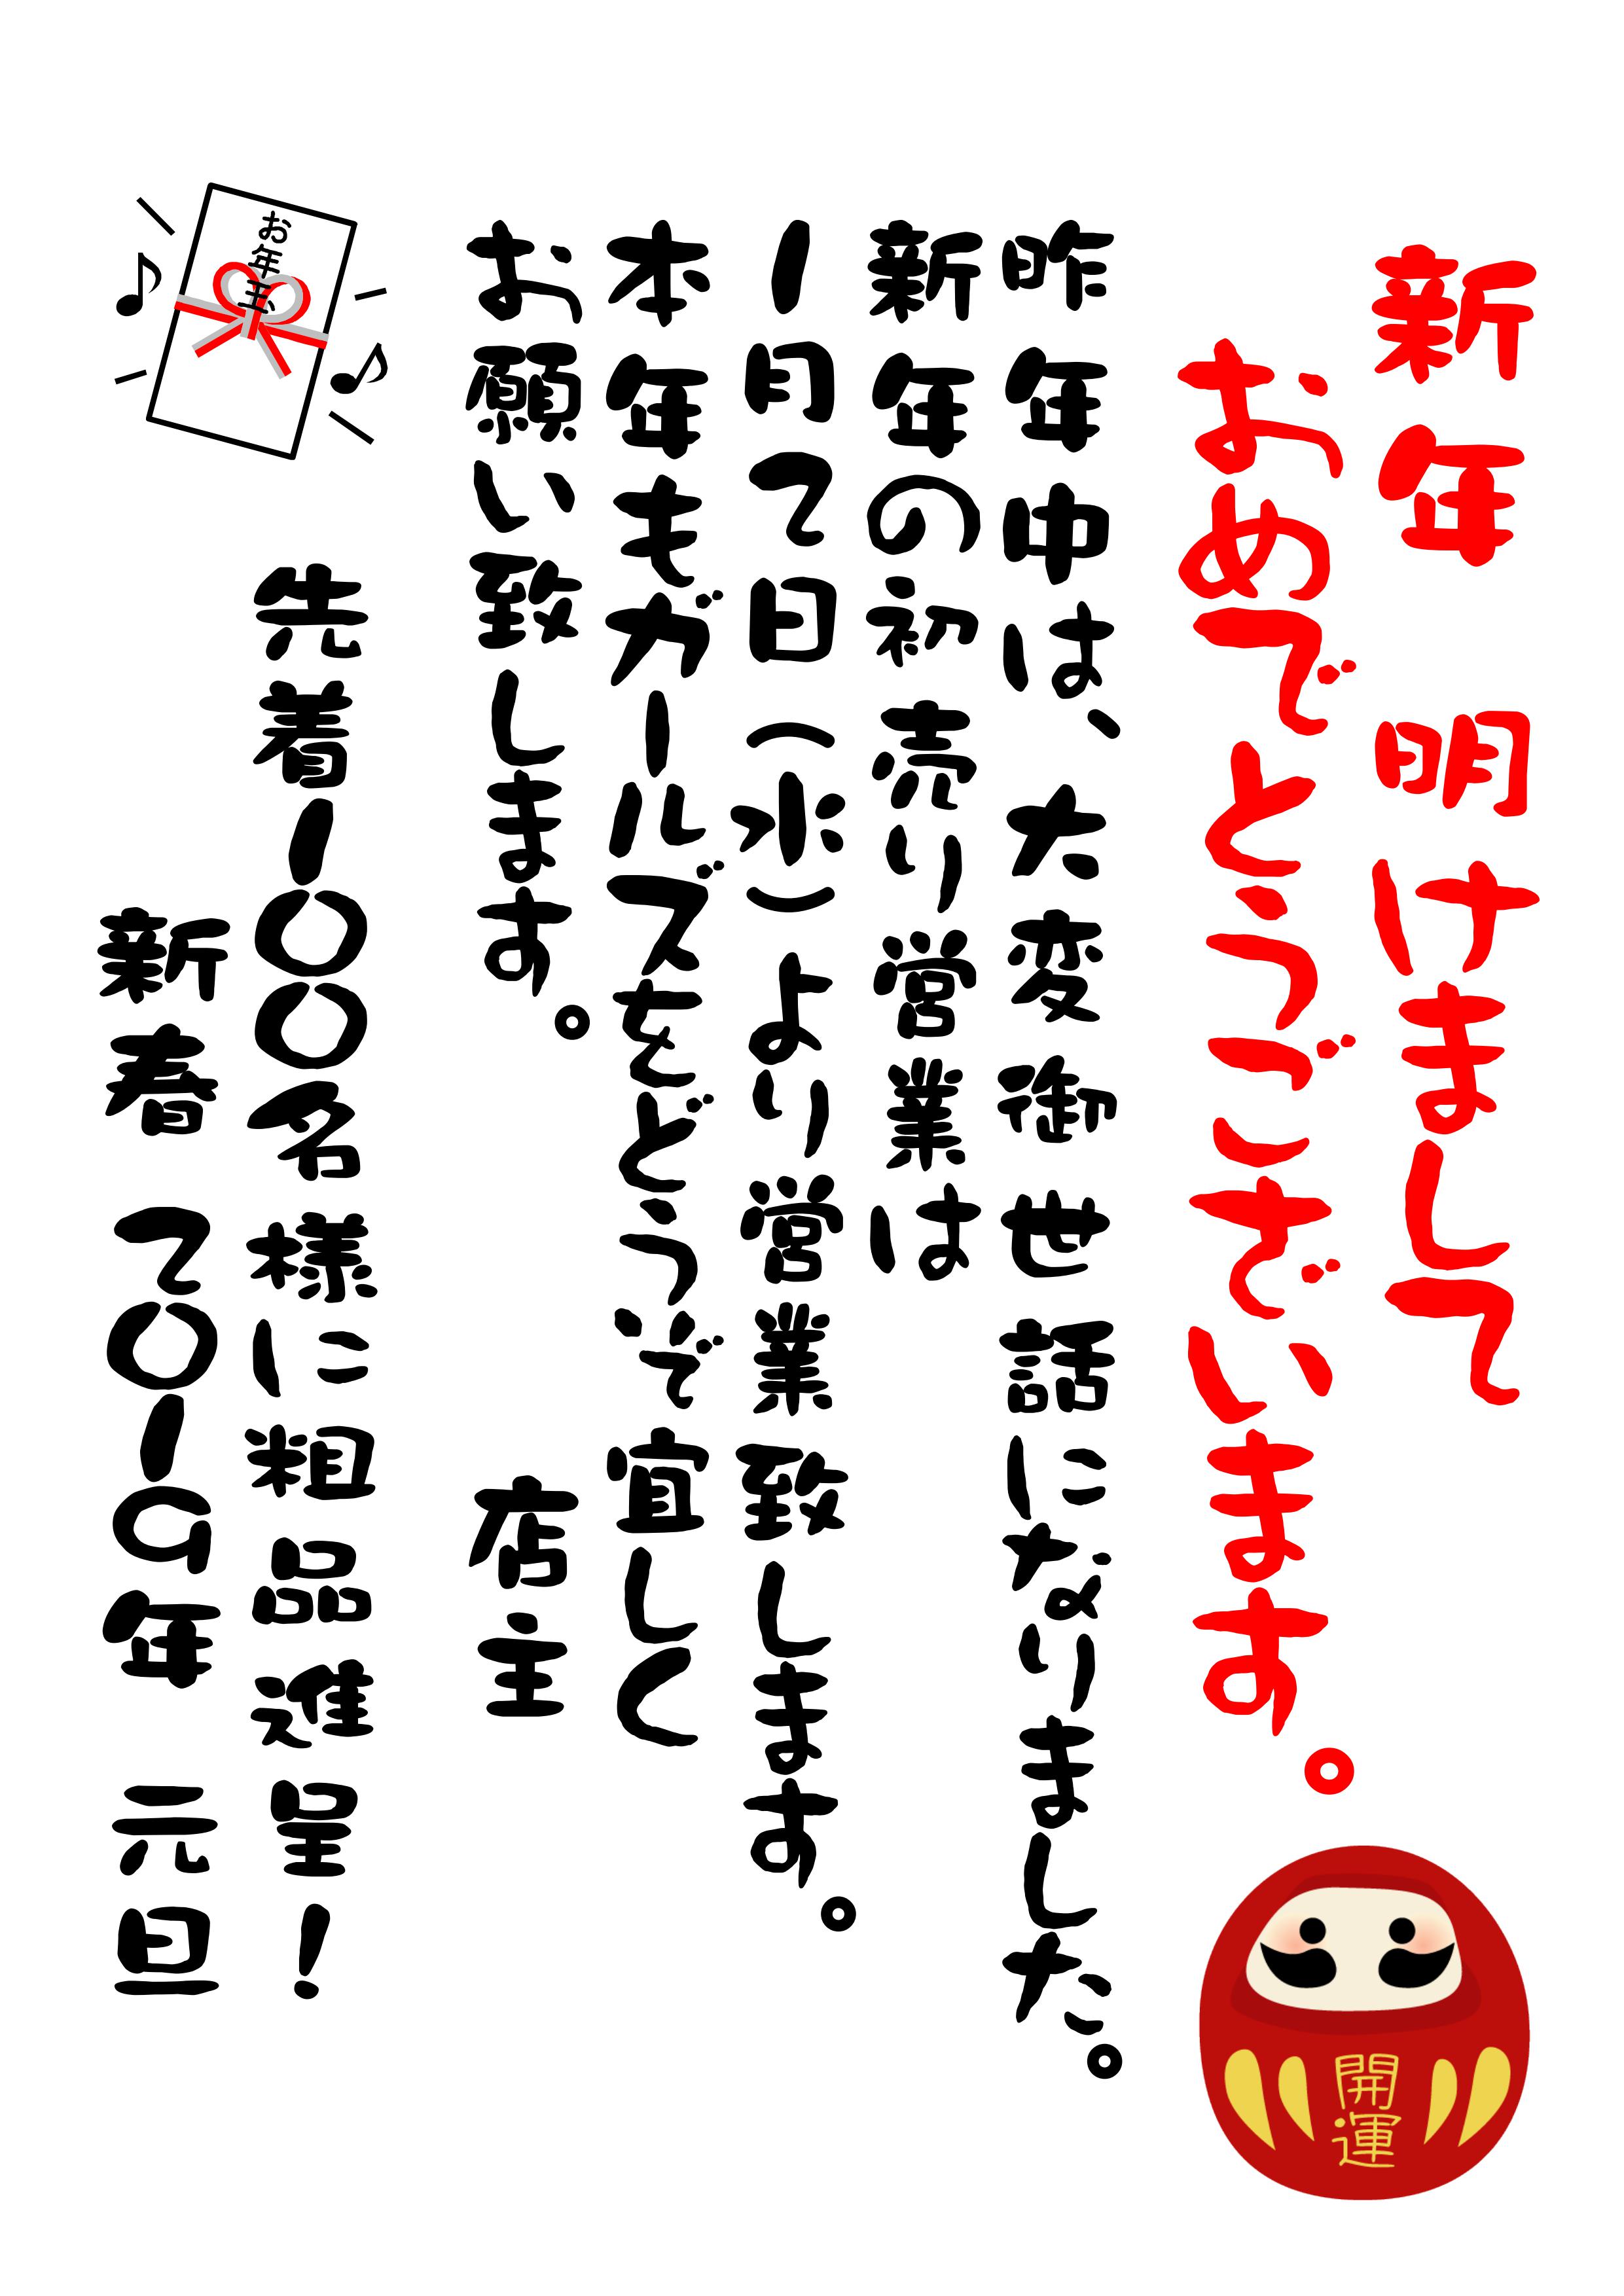 新年 明けまして
おめでとうございます。
昨年中は、大変御世話になりました。
新年の初売り営業は
1月2日（水）より営業致します。
本年もガールズをどうぞ宜しく
お願い致します。
店主
お年玉
先着100名様に粗品進呈！
新春 2019年 元旦
開運